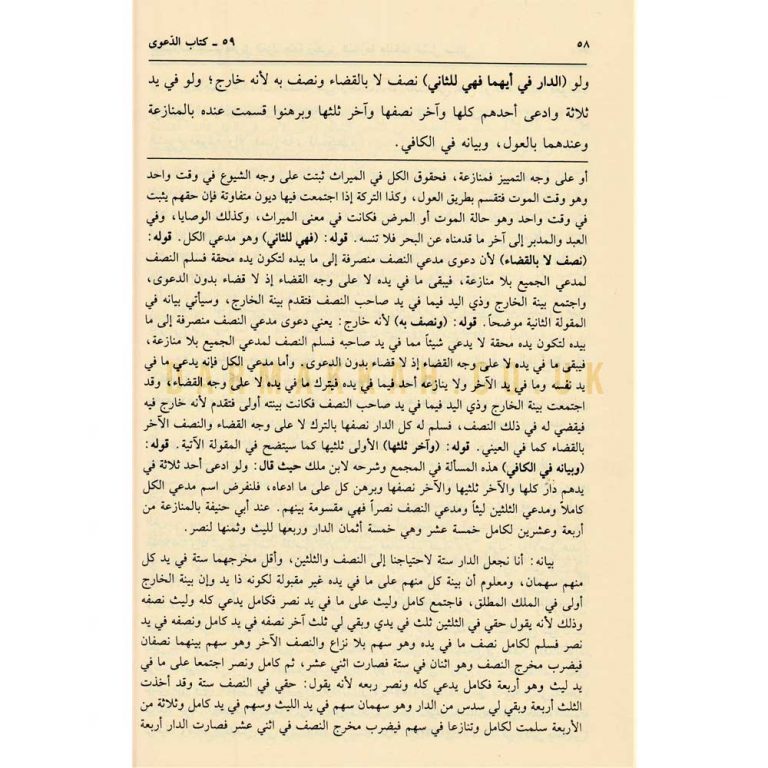 ٥٨
٥٩ ـ كتاب الدّعوى
ولو (الدار في أيهما فهي للثاني) نصف لا بالقضاء ونصف به لأنه خارج؛ ولو في يد
ثلاثة وادعى أحدهم كلها وآخر نصفها وآخر ثلثها وبرهنوا قسمت عنده بالمنازعة
وعندهما بالعول، وبيانه في الكافي.
أو على وجه التمييز فمنازعة، فحقوق الكل في الميراث ثبتت على وجه الشيوع في وقت واحد
وهو وقت الموت فتقسم بطريق العول، وكذا التركة إذا اجتمعت فيها ديون متفاوتة فإن حقهم يثبت
في وقت واحد وهو حالة الموت أو المرض فكانت في معنى الميراث، وكذلك الوصايا، وفي
العبد والمدبر إلى آخر ما قدمناه عن البحر فلا تنسه. قوله: (فهي للثاني) وهو مدعي الكل. قوله:
(نصف لا بالقضاء) لأن دعوى مدعي النصف منصرفة إلى ما بيده لتكون يده محقة فسلم النصف
لمدعي الجميع بلا منازعة، فيبقى ما في يده لا على وجه القضاء إذ لا قضاء بدون الدعوى،
واجتمع بينة الخارج وذي اليد فيما في يد صاحب النصف فتقدم بينة الخارج، وسيأتي بيانه في
المقولة الثانية موضحاً. قوله: (ونصف به) لأنه خارج: يعني دعوى مدعي النصف منصرفة إلى ما
بيده لتكون يده محقة لا يدعي شيئاً مما في يد صاحبه فسلم النصف لمدعي الجميع بلا منازعة،
فيبقى ما في يده لا على وجه القضاء إذ لا قضاء بدون الدعوى. وأما مدعي الكل فإنه يدعي ما في
يد نفسه وما في يد الآخر ولا ينازعه أحد فيما في يده فيترك ما في يده لا على وجه القضاء، وقد
اجتمعت بينة الخارج وذي اليد فيما في يد صاحب النصف فكانت بينته أولى فتقدم لأنه خارج فيه
فيقضي له في ذلك النصف، فسلم له كل الدار نصفها بالترك لا على وجه القضاء والنصف الآخر
بالقضاء كما في العيني. قوله: (وآخر ثلثها) الأولى ثلثيها كما سيتضح في المقولة الآتية. قوله:
(وبيانه في الكافي) هذه المسألة في المجمع وشرحه لابن ملك حيث قال: ولو ادعى أحد ثلاثة في
يدهم دار كلها والآخر ثلثيها والآخر نصفها وبرهن كل على ما ادعاه، فلنفرض اسم مدعي الكل
كاملاً ومدعي الثلثين ليثاً ومدعي النصف نصراً فهي مقسومة بينهم. عند أبي حنيفة بالمنازعة من
أربعة وعشرين لكامل خمسة عشر وهي خمسة أثمان الدار وربعها لليث وثمنها لنصر.
بيانه: أنا نجعل الدار ستة لاحتياجنا إلى النصف والثلثين، وأقل مخرجهما ستة في يد كل
منهم سهمان، ومعلوم أن بينة كل منهم على ما في يده غير مقبولة لكونه ذا يد وإن بينة الخارج
أولى في الملك المطلق، فاجتمع كامل وليث على ما في يد نصر فكامل يدعي كله وليث نصفه
وذلك لأنه يقول حقي في الثلثين ثلث في يدي وبقي لي ثلث آخر نصفه في يد كامل ونصفه في يد
نصر فسلم لكامل نصف ما في يده وهو سهم بلا نزاع والنصف الآخر وهو سهم بينهما نصفان
فيضرب مخرج النصف وهو اثنان في ستة فصارت اثني عشر، ثم كامل ونصر اجتمعا على ما في
يد ليث وهو أربعة فكامل يدعي كله ونصر ربعه لأنه يقول: حقي في النصف ستة وقد أخذت
الثلث أربعة وبقي لي سدس من الدار وهو سهمان سهم في يد الليث وسهم في يد كامل وثلاثة من
الأربعة سلمت لكامل وتنازعا في سهم فيضرب مخرج النصف في اثني عشر فصارت الدار أربعة